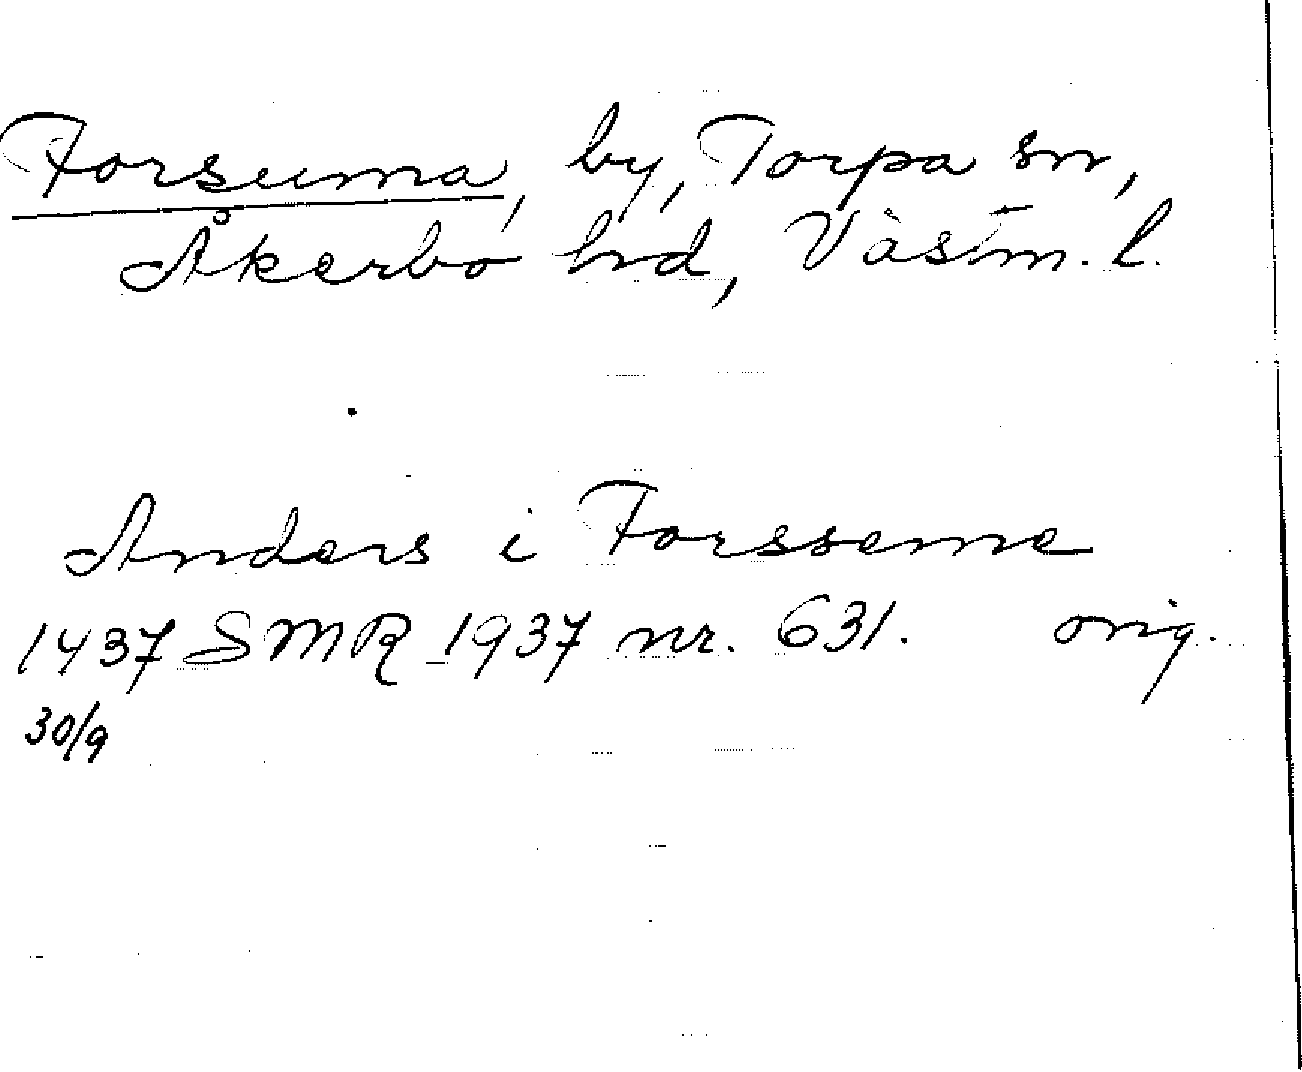 Forsuma, by, Torpa sn,
Åkerbo hd, Västm. l.
Anders i Forsseme
1437 SMR 1937 nr. 631. orig.
30/9